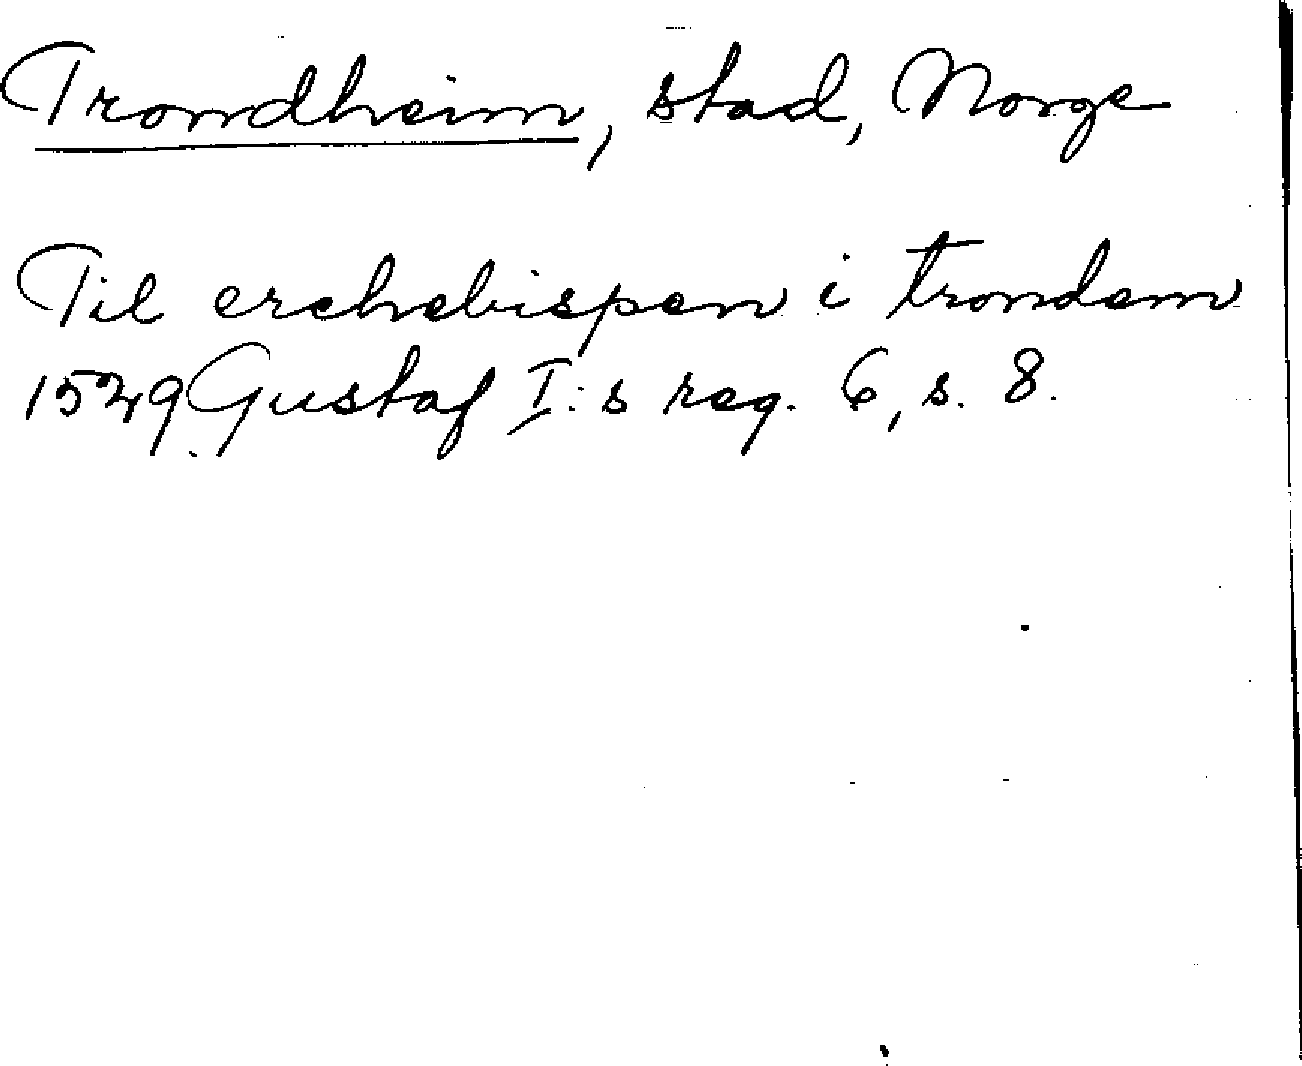 Trondheim, stad, Norge
Til erchebispen i trondem
1529. Gustaf I:s reg. 6, s. 8.